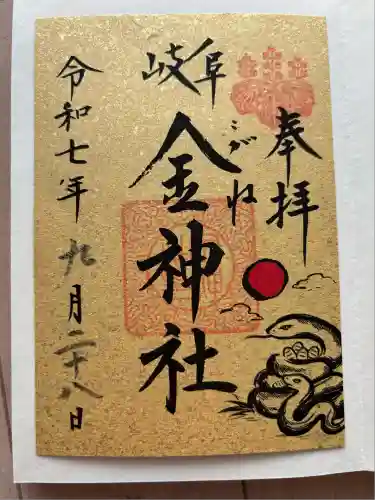 奉拝
岐阜
こがね
金神社
令和七年 九月二十八日